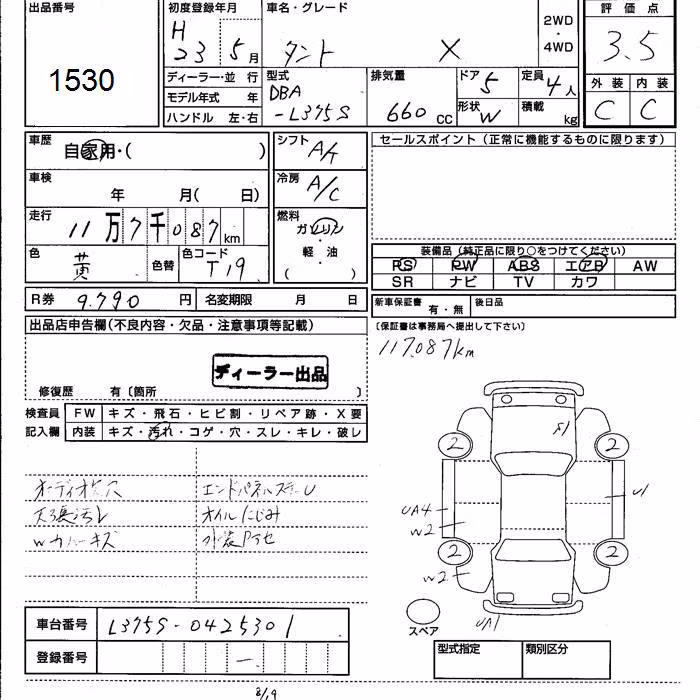 出品番号
1530
初度登録年月
H
23 5月
車名・グレード
タント X
2WD
・
4WD
評価点
3.5
外装 内装
C C
ディーラー・並行
モデル年式 年
ハンドル 左・右
型式
DBA
-L375S
排気量
660 cc
ドア 5
形状 W
定員 4人
積載 kg
車歴
自家用・( )
車検
年 月( 日)
走行
11万7千087km
色
黄
色替
色コード
T19
シフト
A/T
冷房
A/C
燃料
ガソリン
・
軽・油
( )
セールスポイント(正常に機能するものに限ります)
装備品(純正品に限り○をつけてください)
PS PW ABS エアB AW
SR ナビ TV カワ
R券 9.790 円 名変期限 月 日
新車保証書 有・無 後日品
(保証書は事務局へ提出して下さい)
117.087km
出品店申告欄(不良内容・欠品・注意事項等記載)
ディーラー出品
修復歴 有〔箇所 〕
検査員 FW キズ・飛石・ヒビ割・リペア跡・X要
記入欄 内装 キズ・汚れ・コゲ・穴・スレ・キレ・破レ
天張汚レ オイルにじみ
Wカバーキズ
2 2
A1
U1
UA4
W2
2 2
W2
UA1
スペア
車台番号 L375S-0425301
登録番号 ー
型式指定 類別区分
8/19